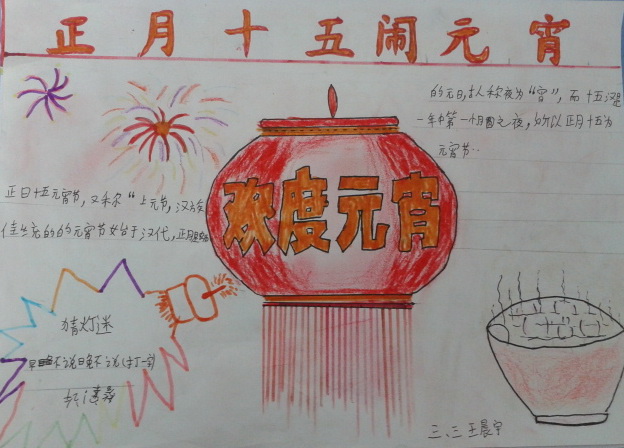 正月十五闹元宵
的元日,古人称夜为“宵”,而十五是
一年中第一个月圆之夜,所以正月十五为
元宵节…
欢度元宵
正日十五元宵节,又称“上元节,汉族
传的元宵节始于汉代,正月是
猜灯迷
早不说晚不说(打一字)
三、三 王晨宇